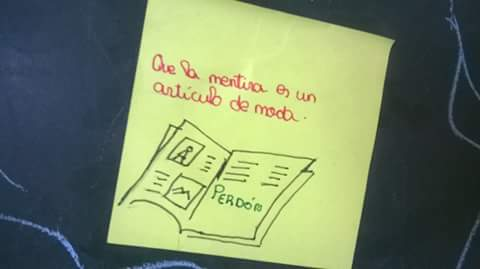 Que la mentira es un
artículo de moda.
PERDÓN